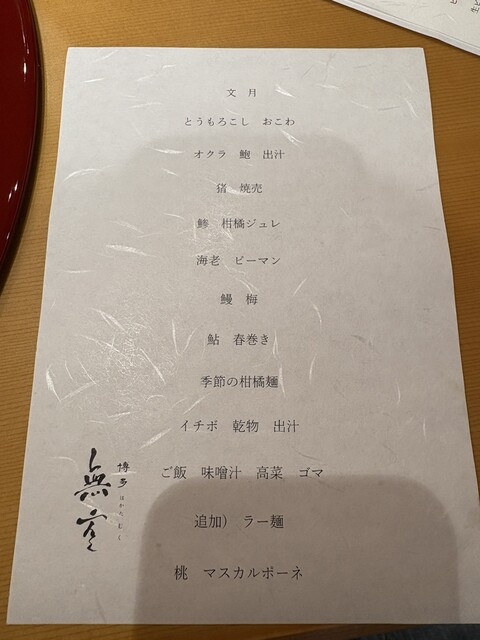 文 月
とうもろこし おこわ
オクラ 鮑 出汁
猪 焼売
鯵 柑橘ジュレ
海老 ピーマン
鰻 梅
鮎 春巻き
季節の柑橘麺
イチボ 乾物 出汁
ご飯 味噌汁 高菜 ゴマ
追加） ラー麺
桃 マスカルポーネ
博多
はかた むく